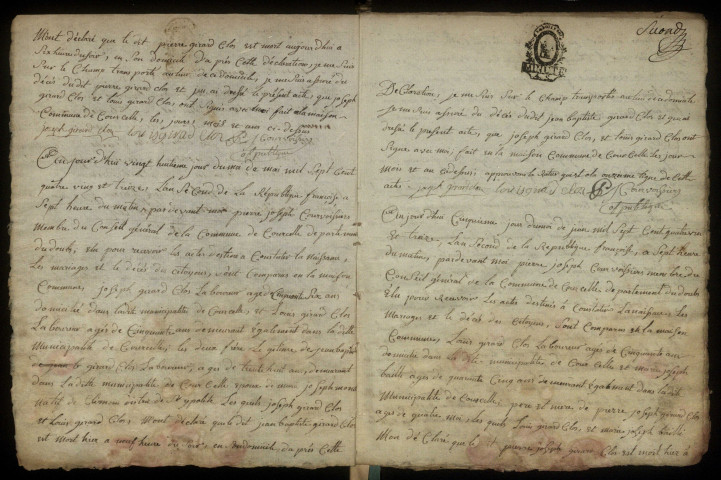 M'ont déclaré que le dit pierre girard Clos est mort aujourd'hui a
Six heure du soir, en son domicile, da prés Cette déclaration, je me suis
Sur le Champ transporté au lieu de ce domicile, je me suis assuré du
décés du dit pierre girard clos et j'en ai dressé le présent acte, que joseph
girard Clos et louis girard Clos, ont Signés avec moi fait a la maison
Commune de Courcelle, les jours, mois et ans ci-dessus
joseph girard Clos louis girard Clos Courvoisier
officier publique
Cejourd'hui vingt huitieme jour du mois de mai mil Sept Cent
quatre vingt et treize, L'an Second de La République françoise a
Sept heure du matin, par devant moi pierre joseph Courvoisier
Membre du Conseil général de la Commune de Courcelle departement
du doubs, élu pour recevoir les actes destinés a Constater la Naissance
Les mariage et le décés du Citoyens, Sont Comparus en la maison
Commune, joseph girard Clos Laboureur agé Cinquante Six ans
domicilié dans ladite municipalité de Courcelle, et Louis girard Clos
Laboureur agés de Cinquante ans demeurant également dans la dite
Municipalité de Courcelle, les deux frère
le girard Clos Laboureur, agés de trente huit ans, demeurant
dans Ladite municipalité de Courcelle époux de
Les quels joseph girard Clos
et Louis girard Clos, Mont déclaré que le dit jean baptiste girard Clos
est Mort hier a neuf heure du soir en Son domicile, da prés Cette
Second
Déclaration, je me Suis Sur le Champ transportés au lieu de ce domicile
je me suis assuré du décés dudit jean baptiste girard Clos, et j'en ai
dressé le présent acte, que joseph girard Clos, et Louis girard Clos ont
Signé avec moi, fait en la maison Commune de Courcelle les jour
Mois et an cidessus, approuvant
acte joseph girard Clos louis girard Clos Courvoisier
officier publique
Cejourd'hui Cinquieme jour du mois de juin mil Sept Cent quatre vingt
et treize, Lan Second de la République françoise, a Sept heure
du matin, pardevant moi pierre joseph Courvoisier membre du
Conseil général de la Commune de Courcelle, departement du doubs
Elu pour Recevoir Les actes destinés a Constater la naissance les
Mariages et le décés des Citoyens, Sont Comparus en la maison
Commune, Louis girard Clos Laboureur agés de Cinquante ans
demeurant dans la dite municipalités de Courcelle et marie joseph
agés de quarante Cinq ans demeurant également dans ladite
Municipalité de Courcelle, pere et mere de pierre joseph girard Clos
agés de quatre mois, Les quels Louis girard Clos, et marie joseph
Mon dé Claré que le dit pierre joseph girard Clos est mort hier à